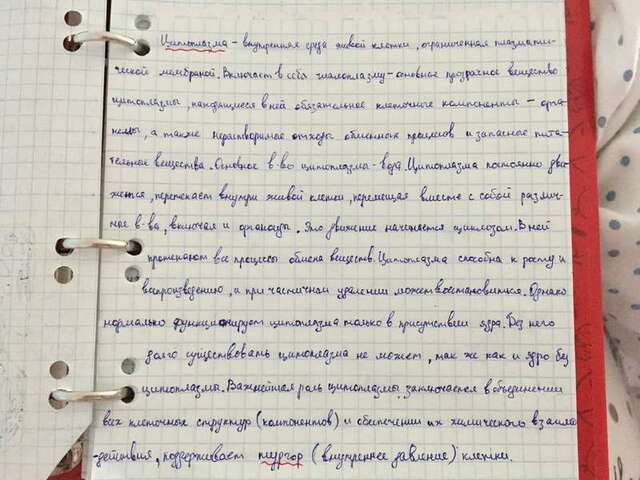 Цитоплазма - внутренняя среда живой клетки, ограниченная плазмати-
ческой мембраной. Включает в себя гиалоплазму - основное прозрачное вещество
цитоплазмы, находящиеся в ней обязательное клеточные компоненты - орга-
неллы, а также нерастворимое отходы обменных процессов и запасные пита-
тельное вещества. Основное в-во цитоплазма - вода. Цитоплазма постоянно дви-
жется, перетекает внутри живой клетки, перемещая вместе с собой различ-
ные в-ва, включая и органоиды. Это движение начиняется циклозом. В ней
протекают все процессы обмена веществ. Цитоплазма способна к росту и
воспроизведению, и при частичном удалении может востановиться. Однако
нормально функционирует цитоплазма только в присутствии ядра. Без него
долго существовать цитоплазма не может, так же как и ядро без
цитоплазмы. Важнейшая роль цитоплазмы заключается в объединении
всех клеточных структур (компонентов) и обеспечении их химического взаимо
-действия, поддерживает тургор (внутреннее давление) клетки.